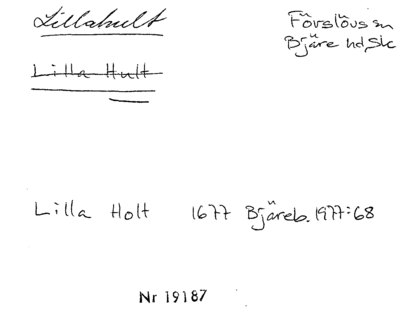 Lillahult
Förslövs sn
Bjäre hd, Sk
Lilla Hult
Lilla Holt 1677 Bjäreb. 1977:68
Nr 19187